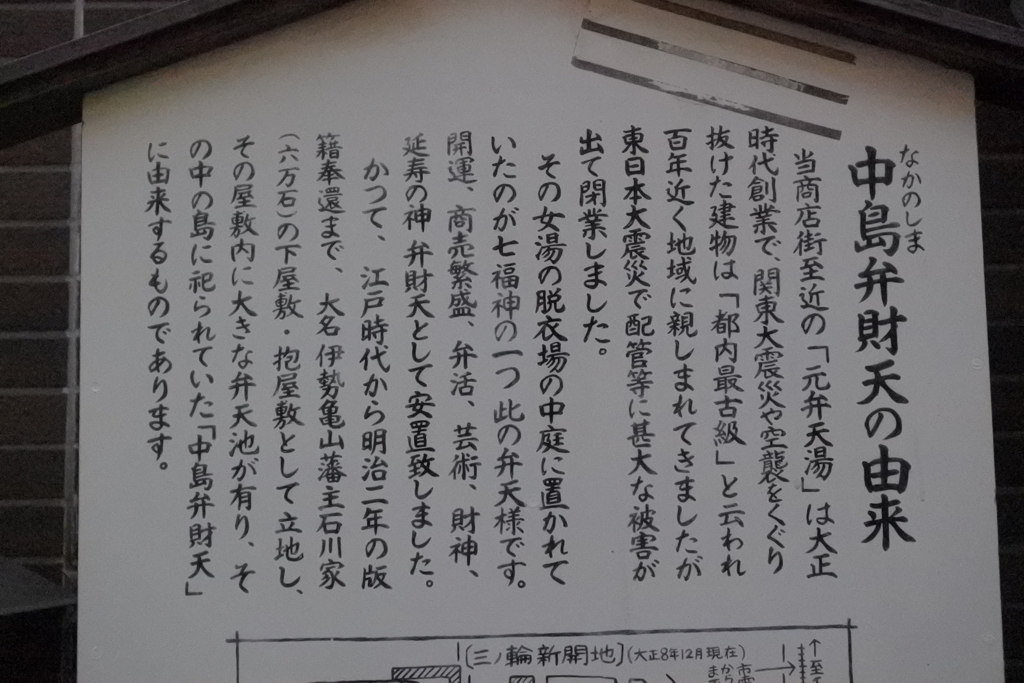 なかのしま
中島弁財天の由来
当商店街至近の「元弁天湯」は大正
時代創業で、関東大震災や空襲をくぐり
抜けた建物は「都内最古級」と云われ
百年近く地域に親しまれてきましたが
東日本大震災で配管等に甚大な被害が
出て閉業しました。
その女湯の脱衣場の中庭に置かれて
いたのが七福神の一つ此の弁天様です。
開運、商売繁盛、弁活、芸術、財神、
延寿の神弁財天として安置致しました。
かつて、江戸時代から明治二年の版
籍奉還まで、大名伊勢亀山藩主石川家
(六万石)の下屋敷・抱屋敷として立地し、
その屋敷内に大きな弁天池が有り、そ
の中の島に祀られていた「中島弁財天」
に由来するものであります。
[三ノ輪新開地](大正8年12月現在)
↑至
市電
から
ま